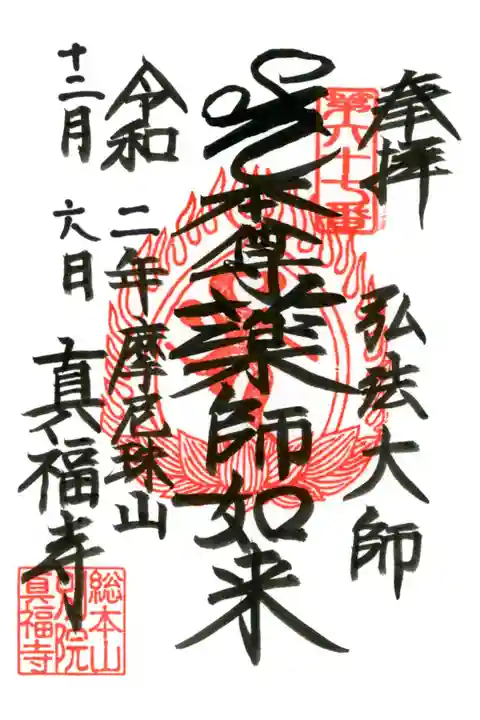 奉拝 弘法大師
第六十七番
本尊薬師如来
令和二年 摩尼珠山
十二月六日 真福寺
総本山
別院
真福寺